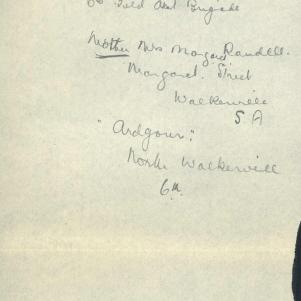 6th Field Art Brigade
Mother Mrs Margaret Randell.
Margaret. Street
Walkerville
S A
"Ardgour."
North Walkerville
6th